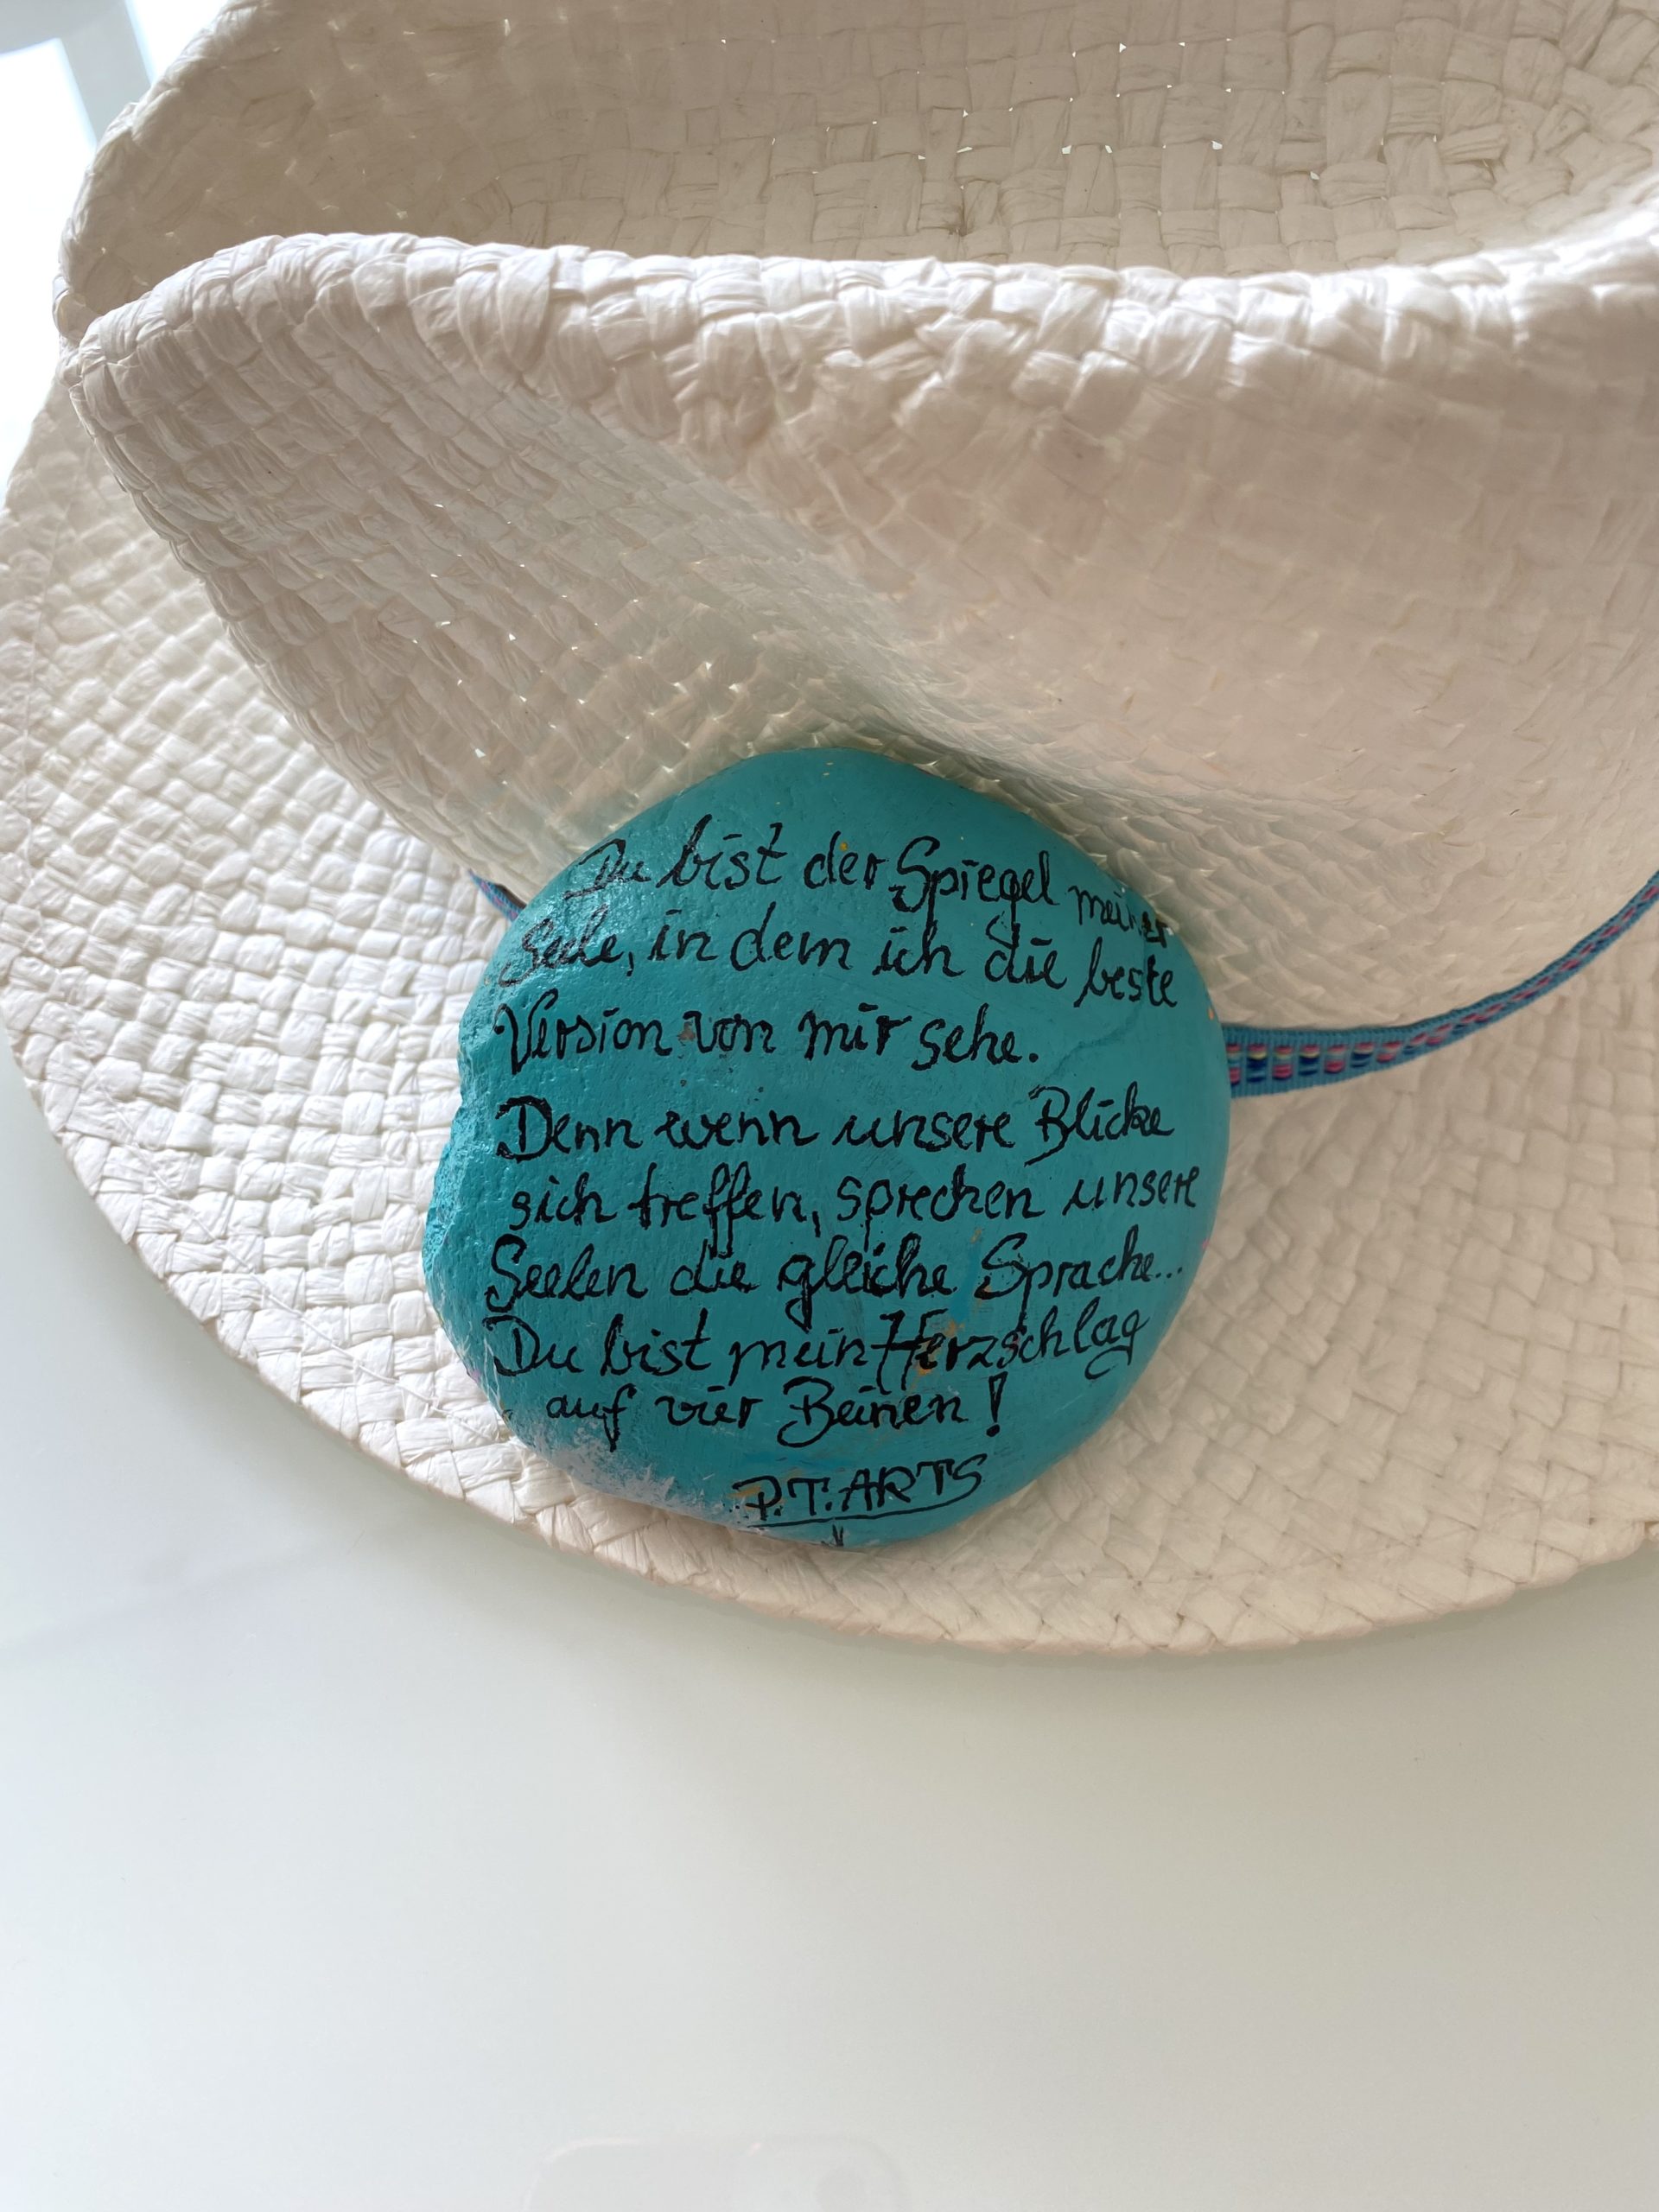 Du bist der Spiegel meiner
Seele, in dem ich die beste
Version von mir sehe.
Denn wenn unsere Blicke
sich treffen, sprechen unsere
Seelen die gleiche Sprache...
Du bist mein Herzschlag
auf vier Beinen!
P.T.ARTS